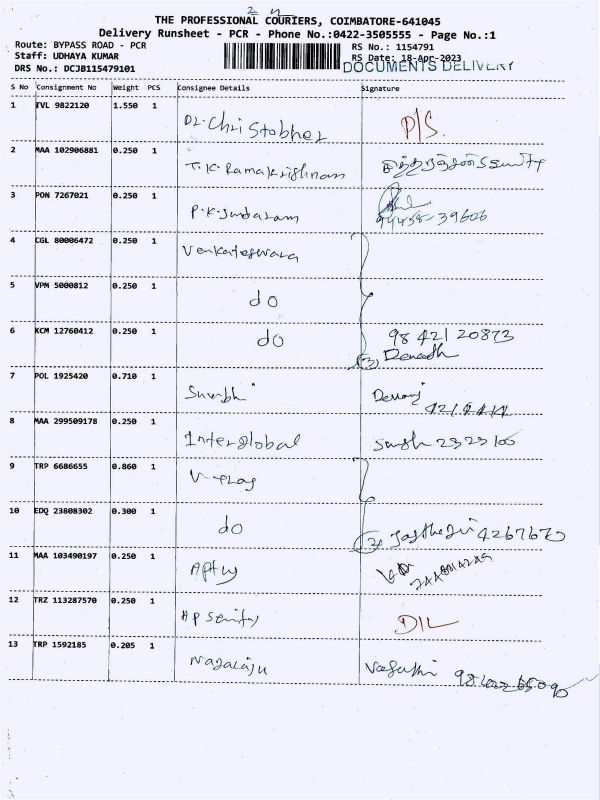 THE PROFESSIONAL COURIERS, COIMBATORE-641045
Delivery Runsheet - PCR - Phone No.:0422-3505555 - Page No.:1
Route: BYPASS ROAD - PCR RS No.: 1154791
Staff: UDHAYA KUMAR RS Date: 18-Apr-2023
DRS No.: DCJB115479101 DOCUMENTS DELIVERY
S No Consignment No Weight PCS Consignee Details Signature
1 TVL 9822120 1.550 1
Dr. Christobher P/S
2 MAA 102906881 0.250 1
T.K. Ramakrishnan
3 PON 7267021 0.250 1
P.K. Sundaram 94438-39606
4 CGL 80006472 0.250 1
Venkateswara
5 VPM 5000812 0.250 1
do
6 KCM 12760412 0.250 1
do 98 421 20873
7 POL 1925420 0.710 1
8 MAA 299509178 0.250 1
Interglobal
9 TRP 6686655 0.860 1
10 EDQ 23808302 0.300 1
do 4267670
11 MAA 103490197 0.250 1
12 TRZ 113287570 0.250 1
D/L
13 TRP 1592185 0.205 1
Nagaraju